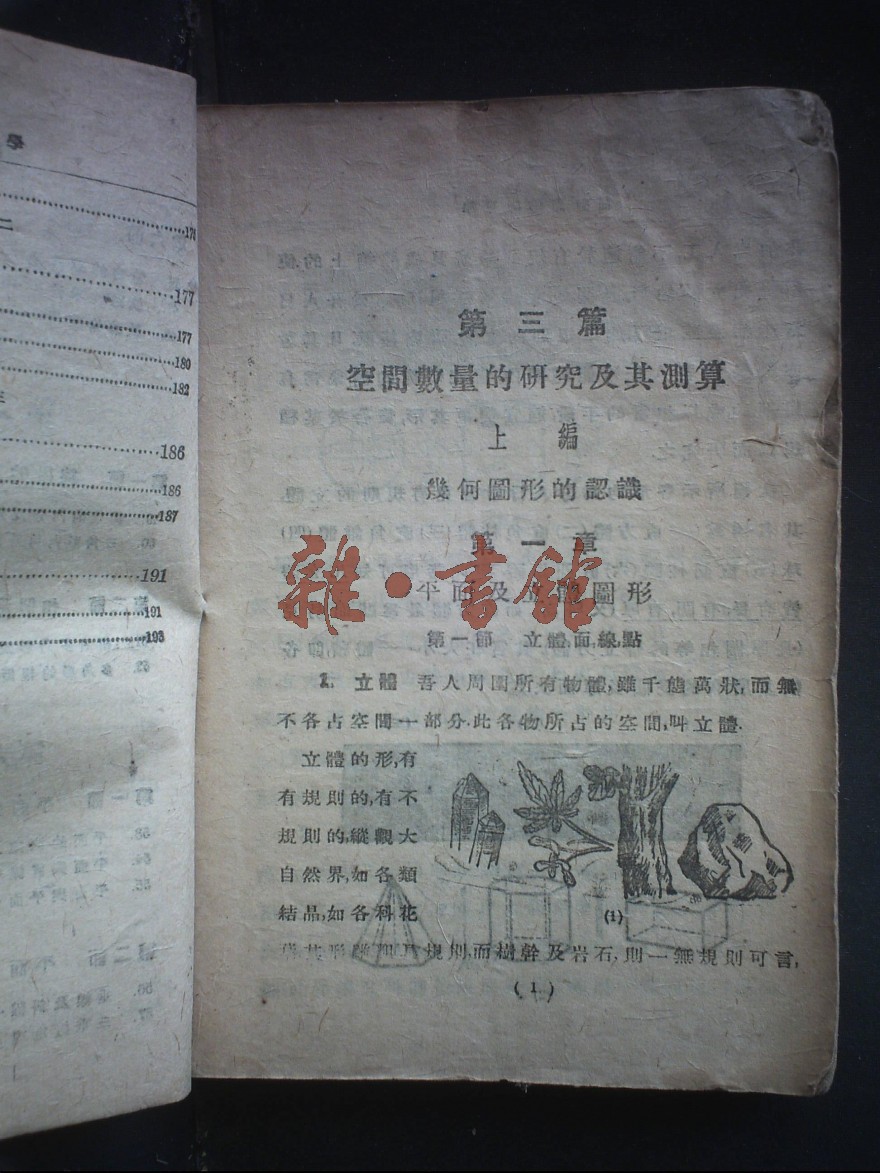 學
二
176
177
177
180
182
186
186
187
191
191
193
第三篇
空間數量的研究及其測算
上編
幾何圖形的認識
第一章
平面及立體圖形
第一節 立體,面,線,點
1. 立體 吾人周圍所有物體,雖千態萬狀,而無
不各占空間一部分.此各物所占的空間,叫立體.
立體的形,有
有規則的,有不
規則的,縱觀大
自然界,如各類
結晶,如各科花
規則,而樹幹及岩石,則一無規則可言,
(1)
(1)
雜·書館